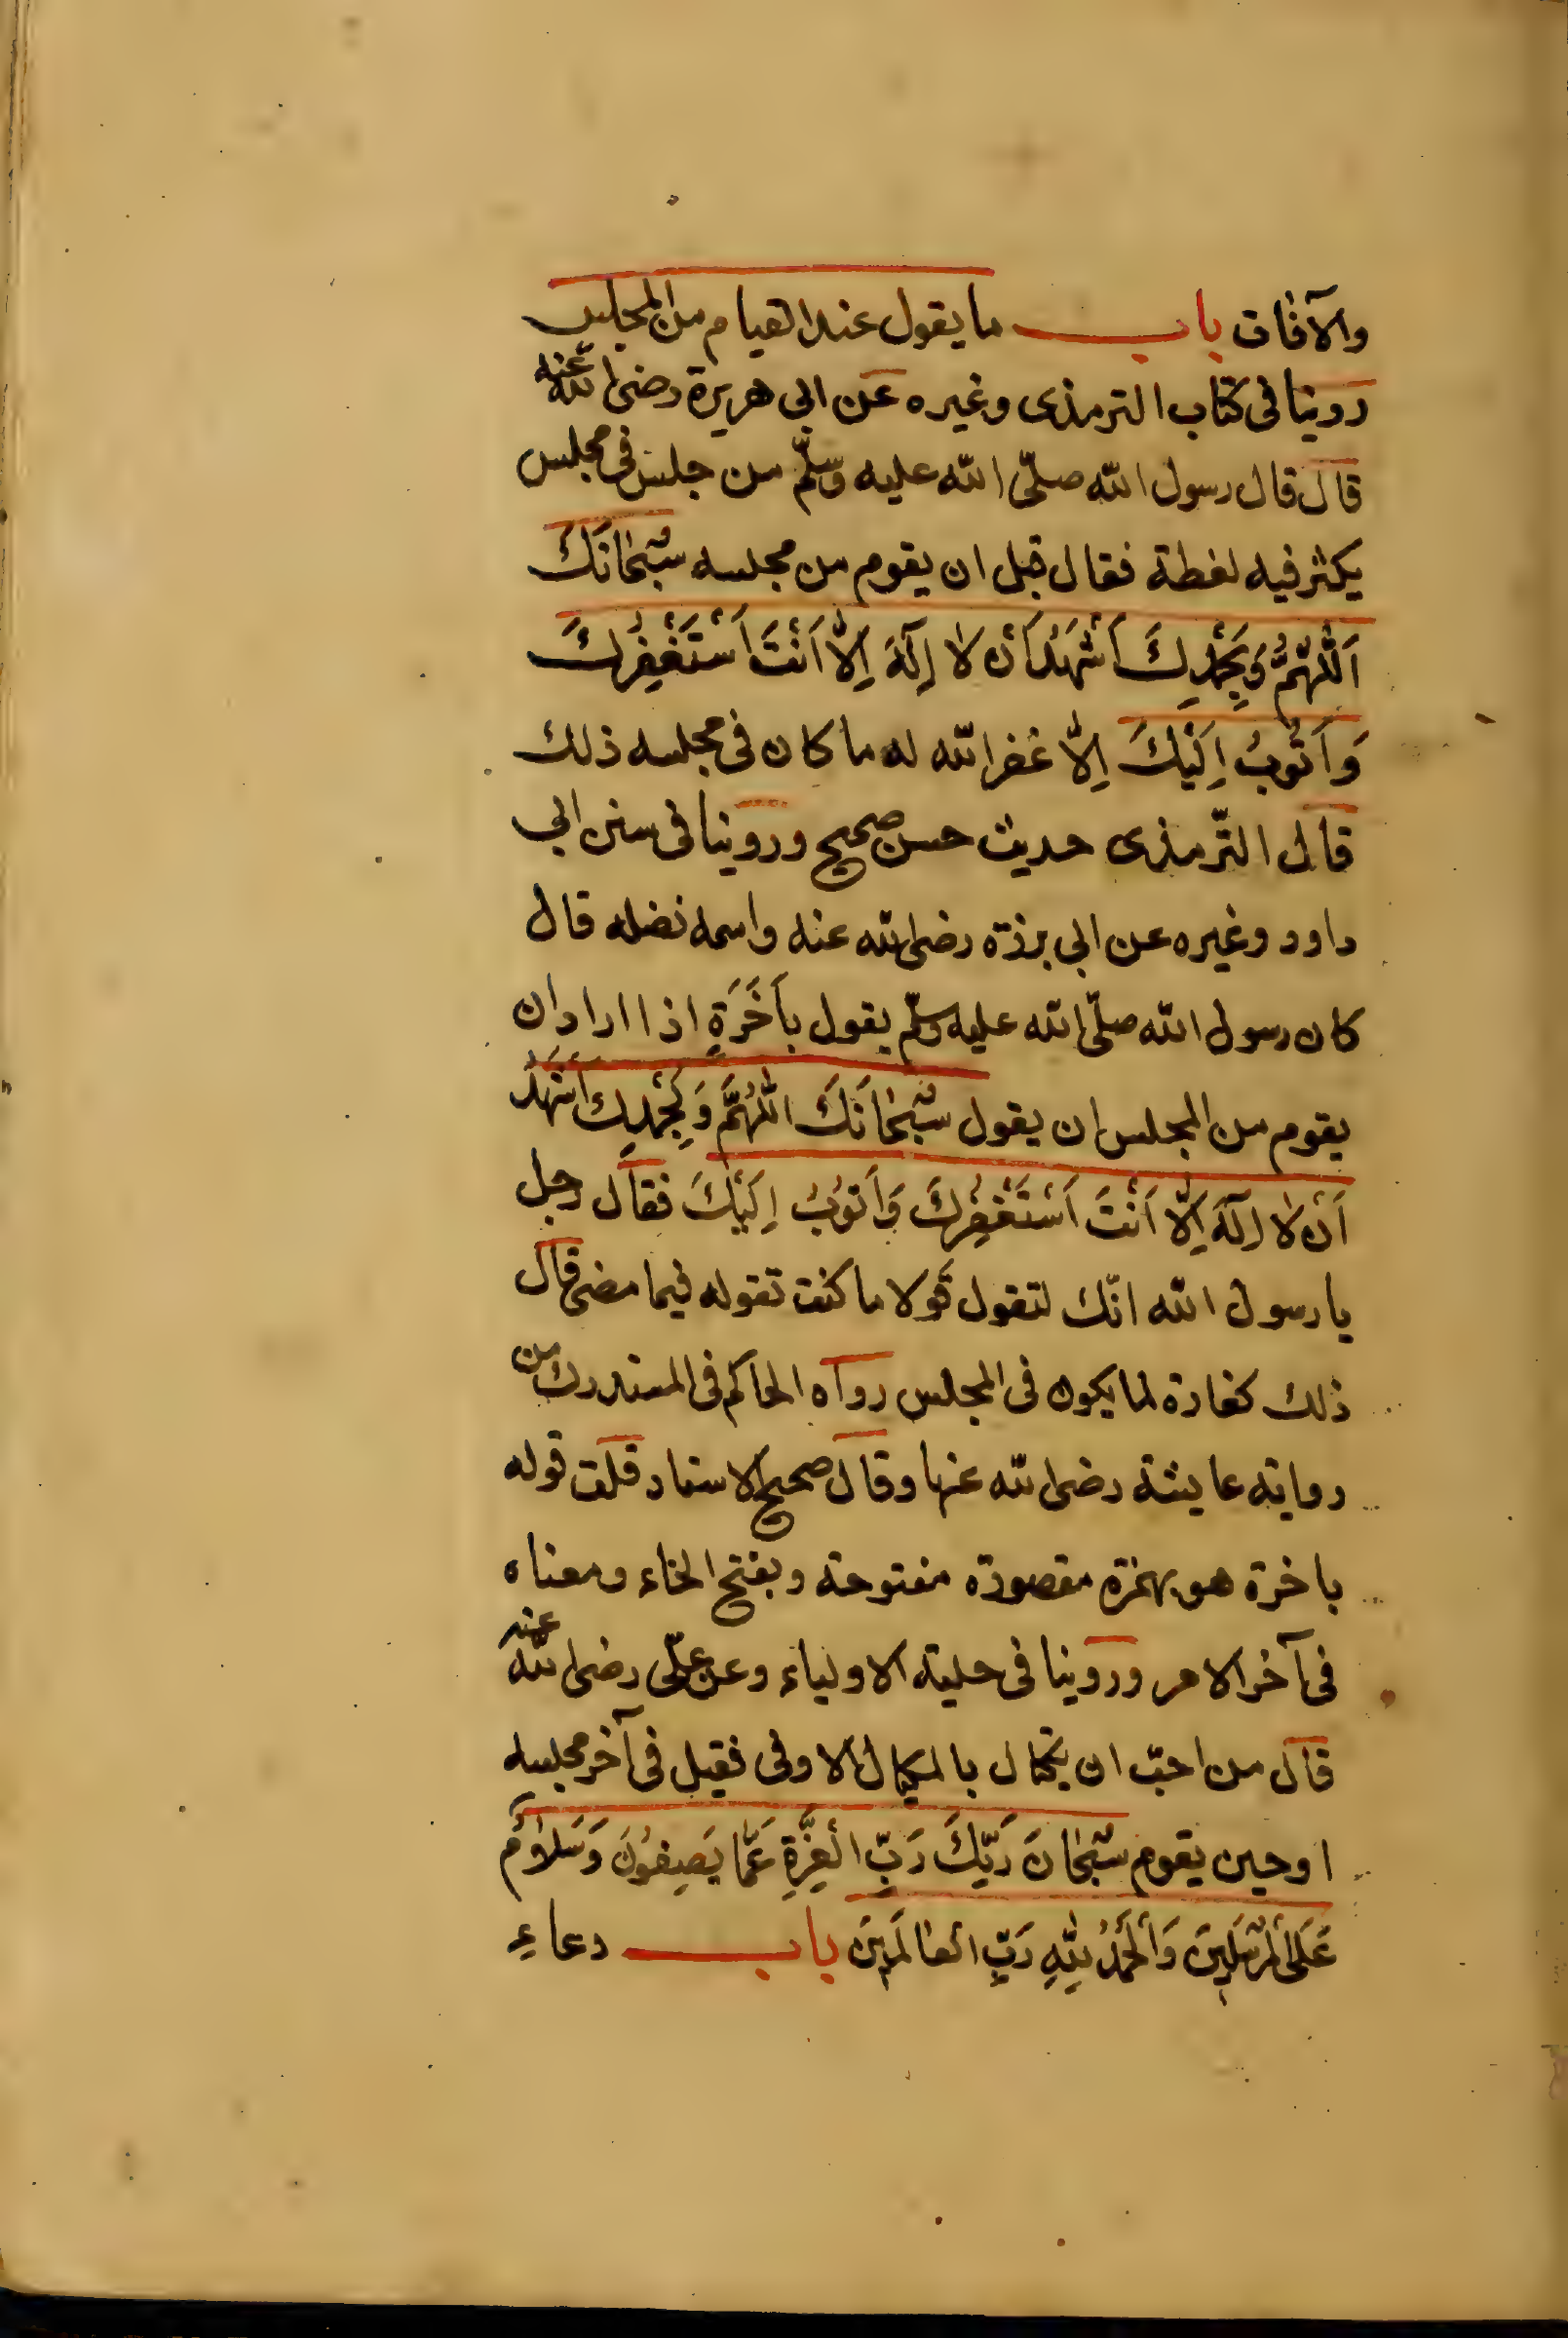 والآفات باب ما يقول عند القيام من المجلس
روينا فى كتاب الترمذى وغيره عن ابى هريرة رضى الله عنه
قال قال رسول الله صلّى الله عليه وسلّم من جلس فى مجلس
يكثر فيه لغطة فقال قبل ان يقوم من مجلسه سُبْحَانَكَ
اَللّٰهُمَّ وَبِحَمْدِكَ اَشْهَدُ اَنْ لا اِلٓهَ اِلاّ اَنْتَ اَسْتَغْفِرُكَ
وَاَتُوبُ اِلَيْكَ اِلاّ غفر الله له ما كان فى مجلسه ذلك
قال التّرمذى حديث حسن صحيح وروينا فى سنن ابى
داود وغيره عن ابى برزة رضى الله عنه واسمه نضله قال
كان رسول الله صلّى الله عليه وسلّم يقول بِاَخَرَةٍ اذا اراد ان
يقوم من المجلس ان يقول سُبْحَانَكَ اللّٰهُمَّ وَبِحَمْدِكَ اَشْهَدُ
اَنْ لا اِلٓهَ اِلاّ اَنْتَ اَسْتَغْفِرُكَ وَاَتُوبُ اِلَيْكَ فقال رجل
يا رسول الله انّك لتقول قولا ما كنت تقوله فيما مضى قال
ذلك كفارة لما يكون فى المجلس رواه الحاكم فى المستدرك من
رواية عايشة رضى الله عنها وقال صحيح الاسناد قلت قوله
باخرة هو بهمزة مقصورة مفتوحة وبفتح الخاء ومعناه
فى آخر الامر وروينا فى حلية الاولياء وعن علّى رضى الله عنه
قال من احبّ ان يكتال بالمكيال الاوفى فقيل فى آخر مجلسه
او حين يقوم سُبْحَانَ رَبِّكَ رَبِّ الْعِزَّةِ عَمَّا يَصِفُونَ وَسَلَامٌ
عَلَى الْمُرْسَلِينَ وَالْحَمْدُ لِلّٰهِ رَبِّ الْعَالَمِينَ باب دعاءِ